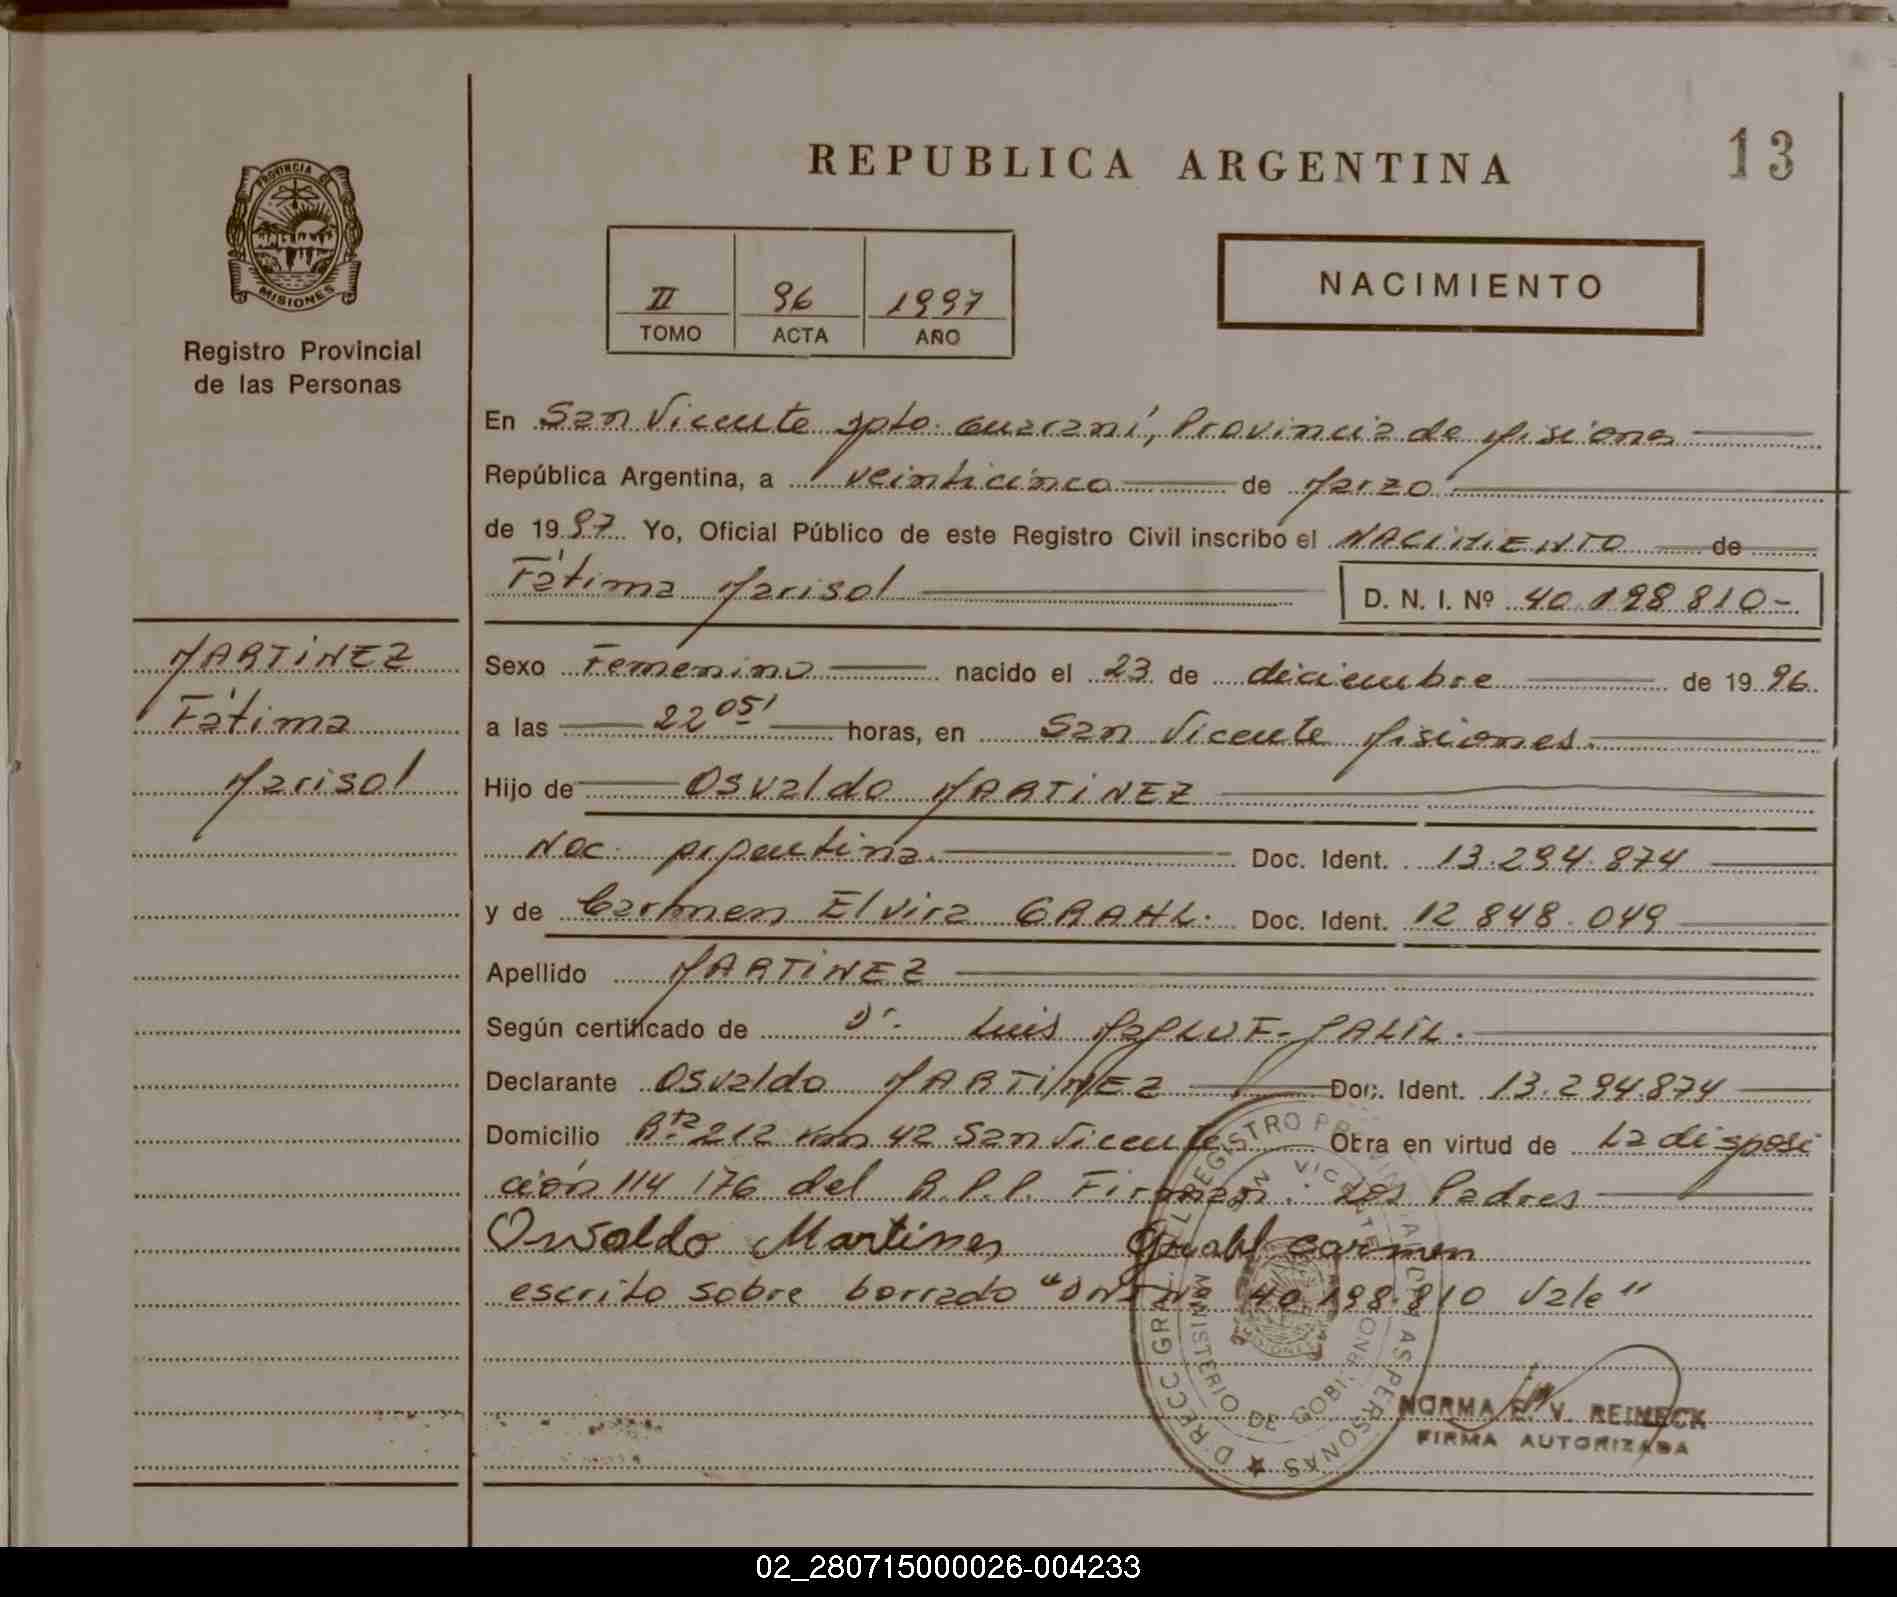 REPUBLICA ARGENTINA
13
PROVINCIA DE
MISIONES
Registro Provincial
de las Personas
II 96 1997
TOMO ACTA AÑO
NACIMIENTO
En San Vicente Dpto. Guaraní, Provincia de Misiones
República Argentina, a veinticinco de Marzo
de 1997 Yo, Oficial Público de este Registro Civil inscribo el NACIMIENTO de
Fátima Marisol
D. N. I. Nº 40.198.810-
MARTINEZ
Fátima
Marisol
Sexo Femenino nacido el 23 de diciembre de 1996
a las 22 05' horas, en San Vicente Misiones.
Hijo de Osvaldo MARTINEZ
Nac. Argentina. Doc. Ident. 13.294.874
y de Carmen Elvira GRAHL. Doc. Ident. 12 848.049
Apellido MARTINEZ
Según certificado de Dr. Luis
Declarante Osvaldo MARTINEZ Doc. Ident. 13.294.874
Domicilio Rta 212 Km 42 San Vicente Obra en virtud de La disposi
ción 114/76 del R.P.P. Firman: Los Padres
Osvaldo Martines Grahl carmen
escrito sobre borrado "DNI Nº 40.198.810 Vale"
D RECC GRAL REGISTRO PROVINCIAL DE LAS PERSONAS
SAN VICENTE
MINISTERIO DE GOBIERNO
NORMA E. V. REINECK
FIRMA AUTORIZADA
02_280715000026-004233